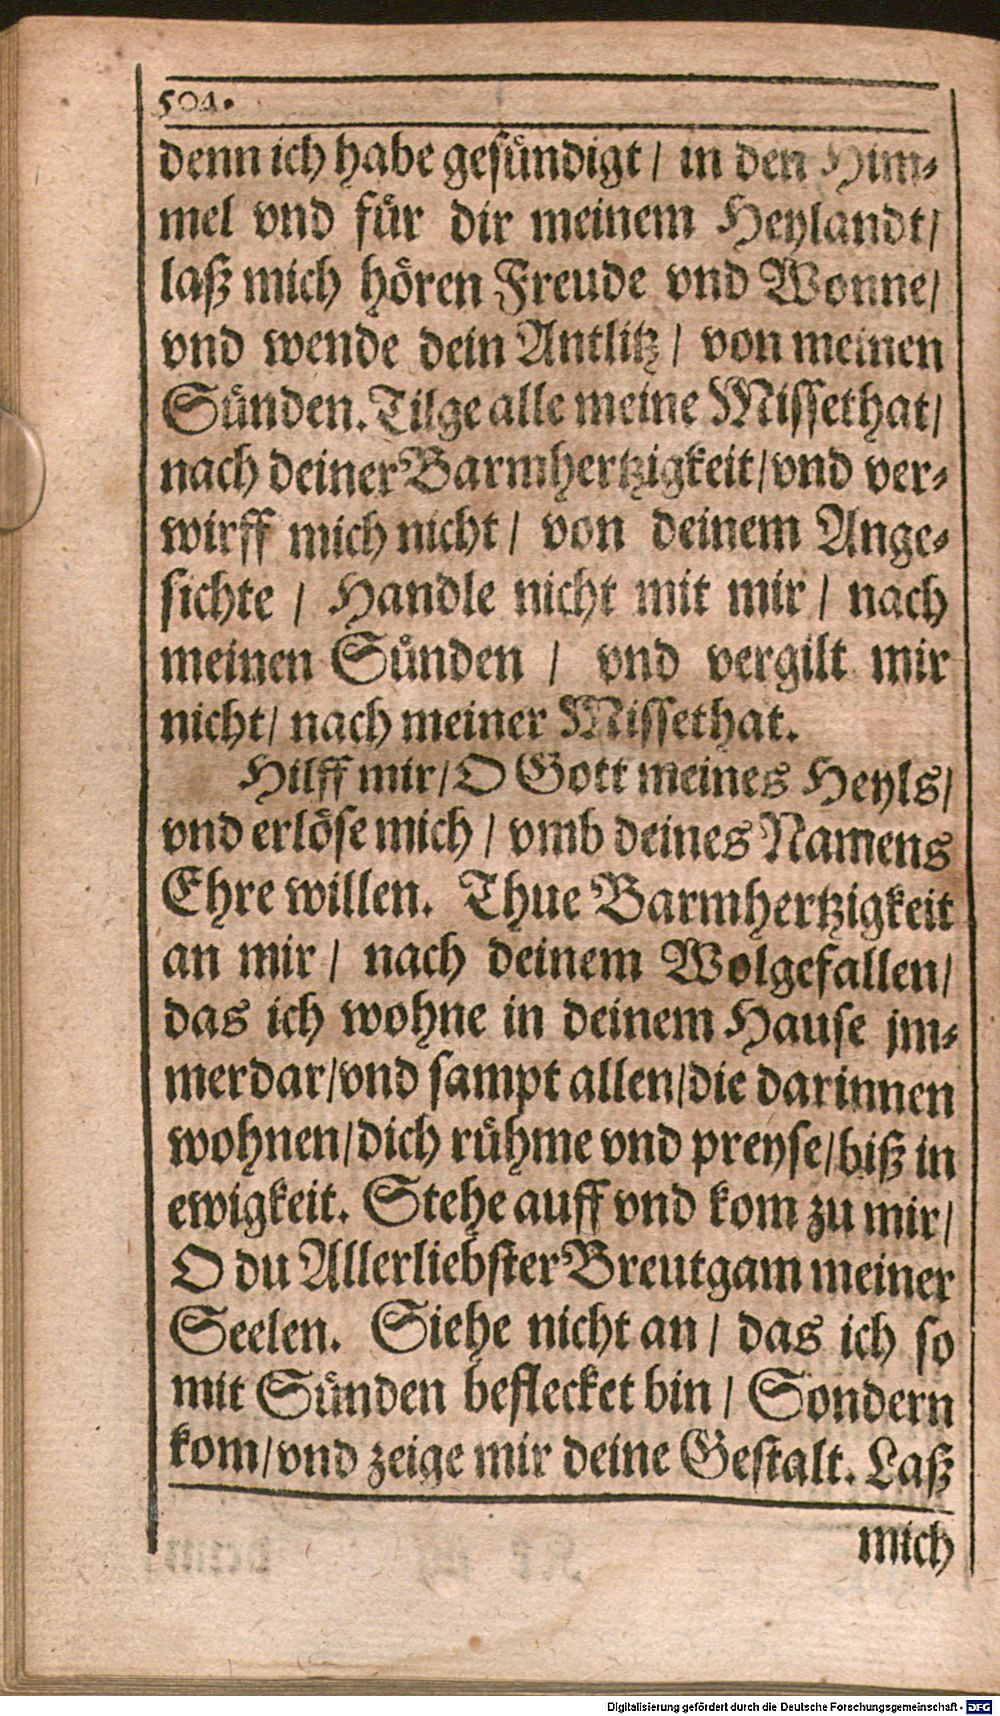 504.
denn ich habe gesündigt / in den Him⸗
mel vnd für dir meinem Heylandt /
laß mich hören Freude vnd Wonne /
vnd wende dein Antlitz / von meinen
Sünden. Tilge alle meine Missethat /
nach deiner Barmhertzigkeit / vnd ver⸗
wirff mich nicht / von deinem Ange⸗
sichte / Handle nicht mit mir / nach
meinen Sünden / vnd vergilt mir
nicht / nach meiner Missethat.
Hilff mir / O Gott meines Heyls /
vnd erlöse mich / vmb deines Namens
Ehre willen. Thue Barmhertzigkeit
an mir / nach deinem Wolgefallen /
das ich wohne in deinem Hause jm⸗
merdar / vnd sampt allen / die darinnen
wohnen / dich rühme vnd preyse / biß in
ewigkeit. Stehe auff vnd kom zu mir /
O du Allerliebster Breutgam meiner
Seelen. Siehe nicht an / das ich so
mit Sünden beflecket bin / Sondern
kom / vnd zeige mir deine Gestalt. Laß
mich
Digitalisierung gefördert durch die Deutsche Forschungsgemeinschaft - DFG